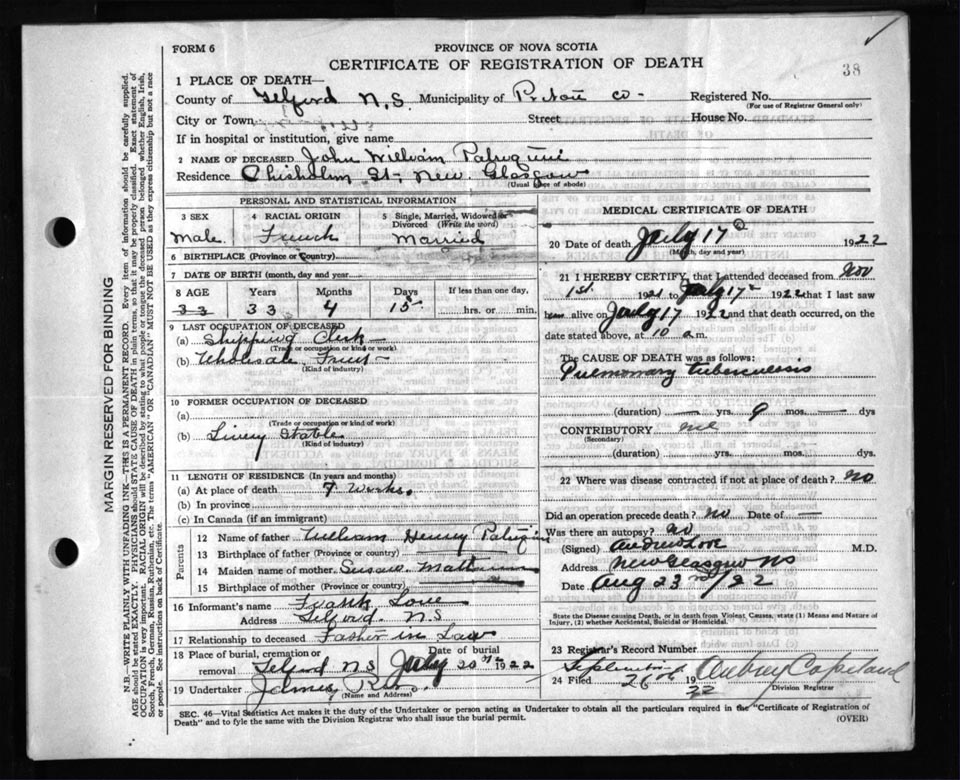 FORM 6
PROVINCE OF NOVA SCOTIA
CERTIFICATE OF REGISTRATION OF DEATH
38
1 PLACE OF DEATH—
County of Telford N.S. Municipality of Pictou co - Registered No.
(For use of Registrar General only)
City or Town Street House No.
If in hospital or institution, give name
2 NAME OF DECEASED John William Patriquin
Residence Chisholm St, New Glasgow
(Usual place of abode)
PERSONAL AND STATISTICAL INFORMATION
3 SEX 4 RACIAL ORIGIN 5 Single, Married, Widowed or Divorced (Write the word)
Male French Married
6 BIRTHPLACE (Province or Country)
7 DATE OF BIRTH (month, day and year)
8 AGE Years Months Days If less than one day,
33 33 4 15 hrs. or min.
9 LAST OCCUPATION OF DECEASED
(a) Shipping Clerk
(Trade or occupation or kind of work)
(b) Wholesale Fruit
(Kind of industry)
10 FORMER OCCUPATION OF DECEASED
(a)
(Trade or occupation or kind of work)
(b) Livery Stable
(Kind of industry)
11 LENGTH OF RESIDENCE (In years and months)
(a) At place of death 7 Weeks.
(b) In province
(c) In Canada (if an immigrant)
Parents
12 Name of father William Henry Patriquin
13 Birthplace of father (Province or country)
14 Maiden name of mother
15 Birthplace of mother (Province or country)
16 Informant's name Frank Love
Address Telford. N.S
17 Relationship to deceased Father in Law
18 Place of burial, cremation or removal Telford N.S Date of burial July 20th 1922
19 Undertaker James
(Name and Address)
MEDICAL CERTIFICATE OF DEATH
20 Date of death July 17 1922
(Month, day and year)
21 I HEREBY CERTIFY, that I attended deceased from Nov
1st 1921 to July 17 1922 that I last saw
him alive on July 17 1922 and that death occurred, on
date stated above, at 10 a.m.
The CAUSE OF DEATH was as follows:
Pulmonary tuberculosis
(duration) — yrs. 9 mos. — dys
CONTRIBUTORY
(Secondary)
(duration) yrs. mos. dys
22 Where was disease contracted if not at place of death? no
Did an operation precede death? no Date of —
Was there an autopsy? no
(Signed) Andrew Love M.D.
Address New Glasgow NS
Date Aug 23rd / 22
State the Disease causing Death, or in death from Violent Causes, state (1) Means and Nature of
Injury, (2) whether Accidental, Suicidal or Homicidal.
23 Registrar's Record Number
24 Filed September 26th 1922 Aubrey Copeland
Division Registrar
SEC. 46—Vital Statistics Act makes it the duty of the Undertaker or person acting as Undertaker to obtain all the particulars required in the "Certificate of Registration of
Death" and to fyle the same with the Division Registrar who shall issue the burial permit.
(OVER)
MARGIN RESERVED FOR BINDING
N.B.—WRITE PLAINLY WITH UNFADING INK—THIS IS A PERMANENT RECORD. Every item of information should be carefully supplied.
AGE should be stated EXACTLY. PHYSICIANS should STATE CAUSE OF DEATH in plain terms, so that it may be properly classified. Exact statement of
OCCUPATION is very important. RACIAL ORIGIN will be described by stating to what people or tongue the deceased person belonged whether English, Irish,
Scotch, French, German, Russian, Ruthenian, etc. The terms "AMERICAN" or "CANADIAN" MUST NOT BE USED as they express citizenship but not a race
or people. See instructions on back of Certificate.